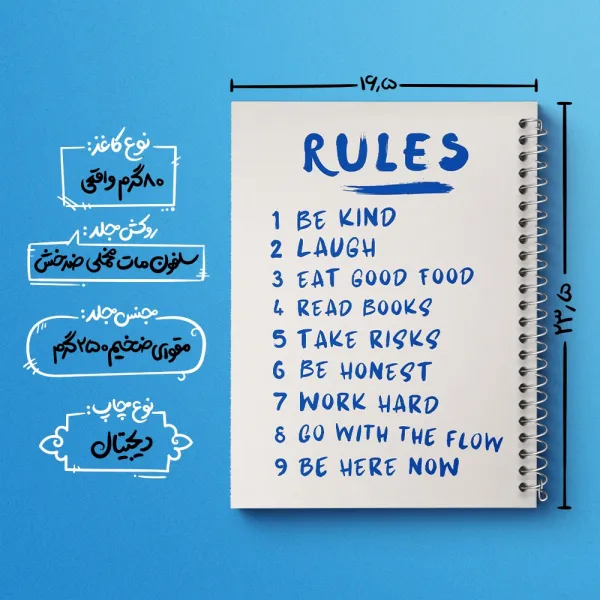 نوع کاغذ:
۸۰ گرم واقعی
روکش جلد:
سلفون مات مخملی ضدخش
جنس جلد:
مقوای ضخیم ۲۵۰ گرم
نوع چاپ:
دیجیتال
۱۶٫۵
RULES
1 BE KIND
2 LAUGH
3 EAT GOOD FOOD
4 READ BOOKS
5 TAKE RISKS
6 BE HONEST
7 WORK HARD
8 GO WITH THE FLOW
9 BE HERE NOW
۲۳٫۵